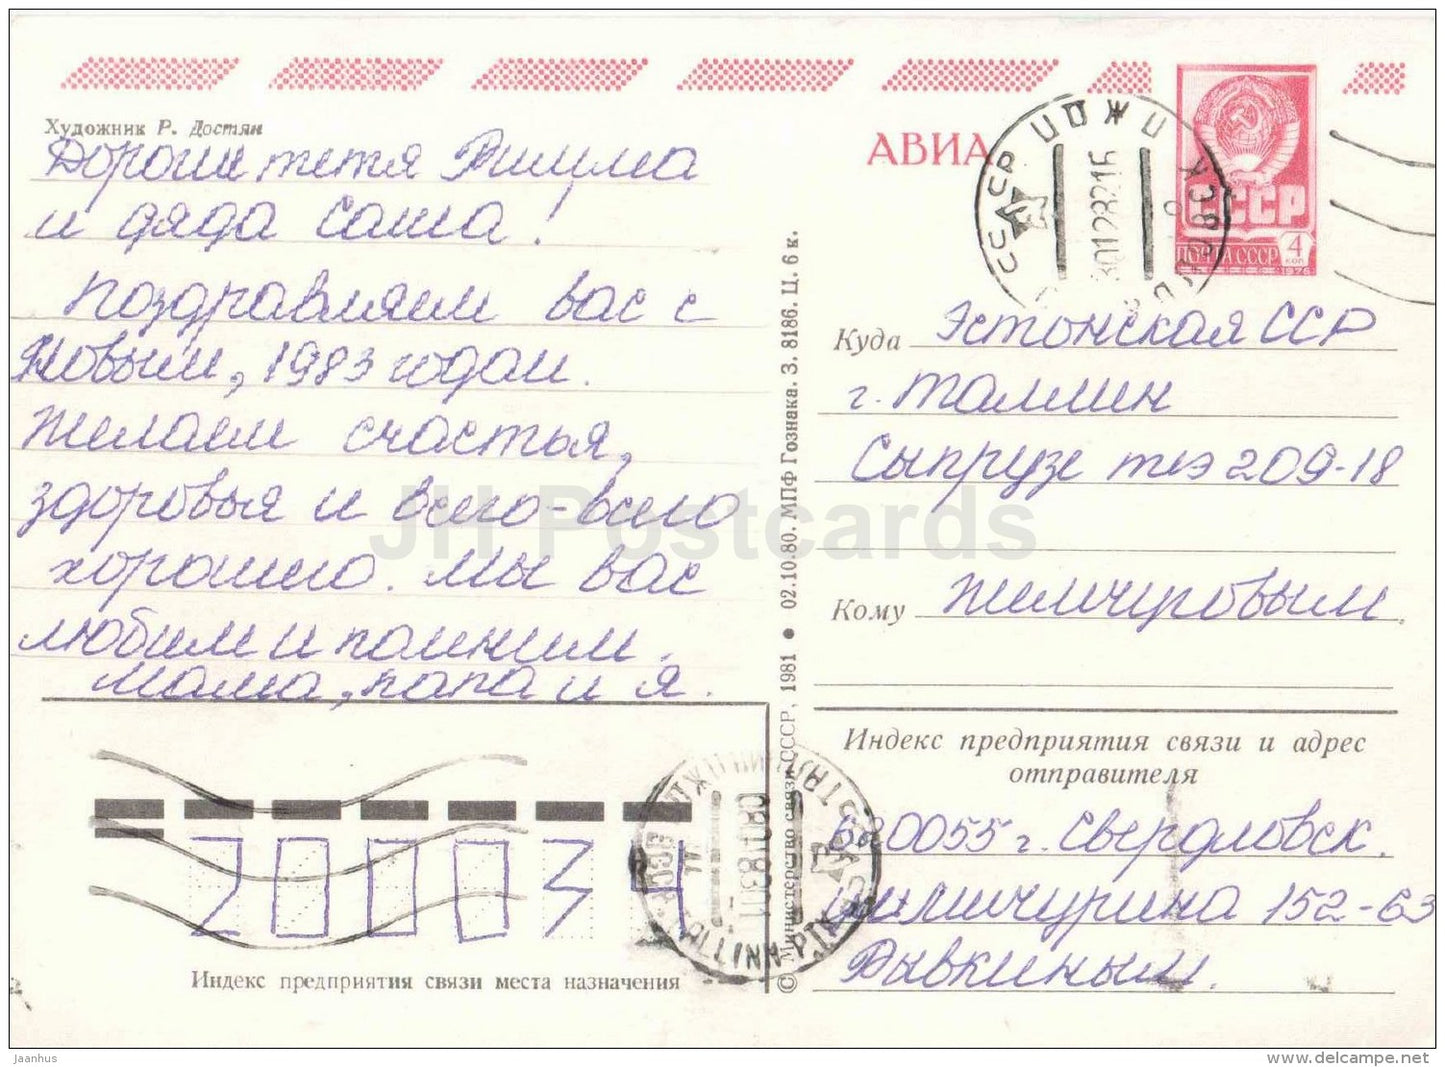 Художник Р. Достян
АВИА
СССР
ПОЧТА СССР 4 КОП
1976
Дорогие тетя Римма
и дядя Саша!
Поздравляем вас с
Новым, 1983 годом.
Желаем счастья,
здоровья и всего-всего
хорошего. Мы вас
любим и помним.
Мама, папа и я.
Куда Эстонская ССР
г. Таллин
Сыпрузе теэ 209-18
Кому Жемчуговым.
Индекс предприятия связи и адрес
отправителя
620055 г. Свердловск.
Мичурина 152-63
Рывкиным.
200034
Индекс предприятия связи места назначения
© Министерство связи СССР, 1981 ● 02.10.80. МПФ Гознака. З. 8186. Ц. 6 к.
JH Postcards
jaanhus
www.delcampe.net